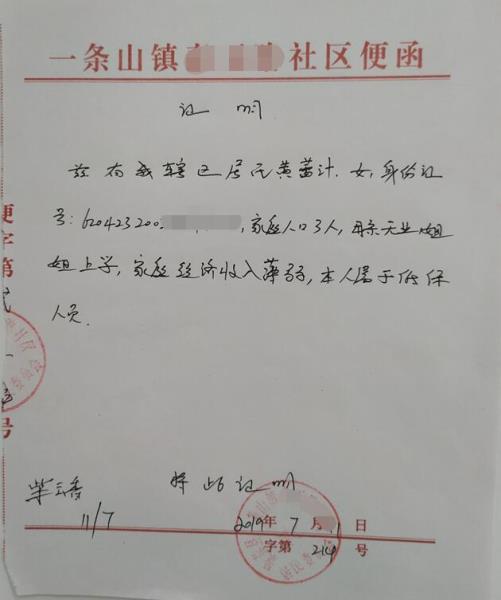 一条山镇 社区便函
证明
兹有我辖区居民黄茜汁，女，身份证
号：620423200 ，家庭人口3人，母亲无业，姐
姐上学，家庭经济收入薄弱，本人属于低保
人员.
特此证明
11/7
2019年7月 1日
字第214号
便字第
号